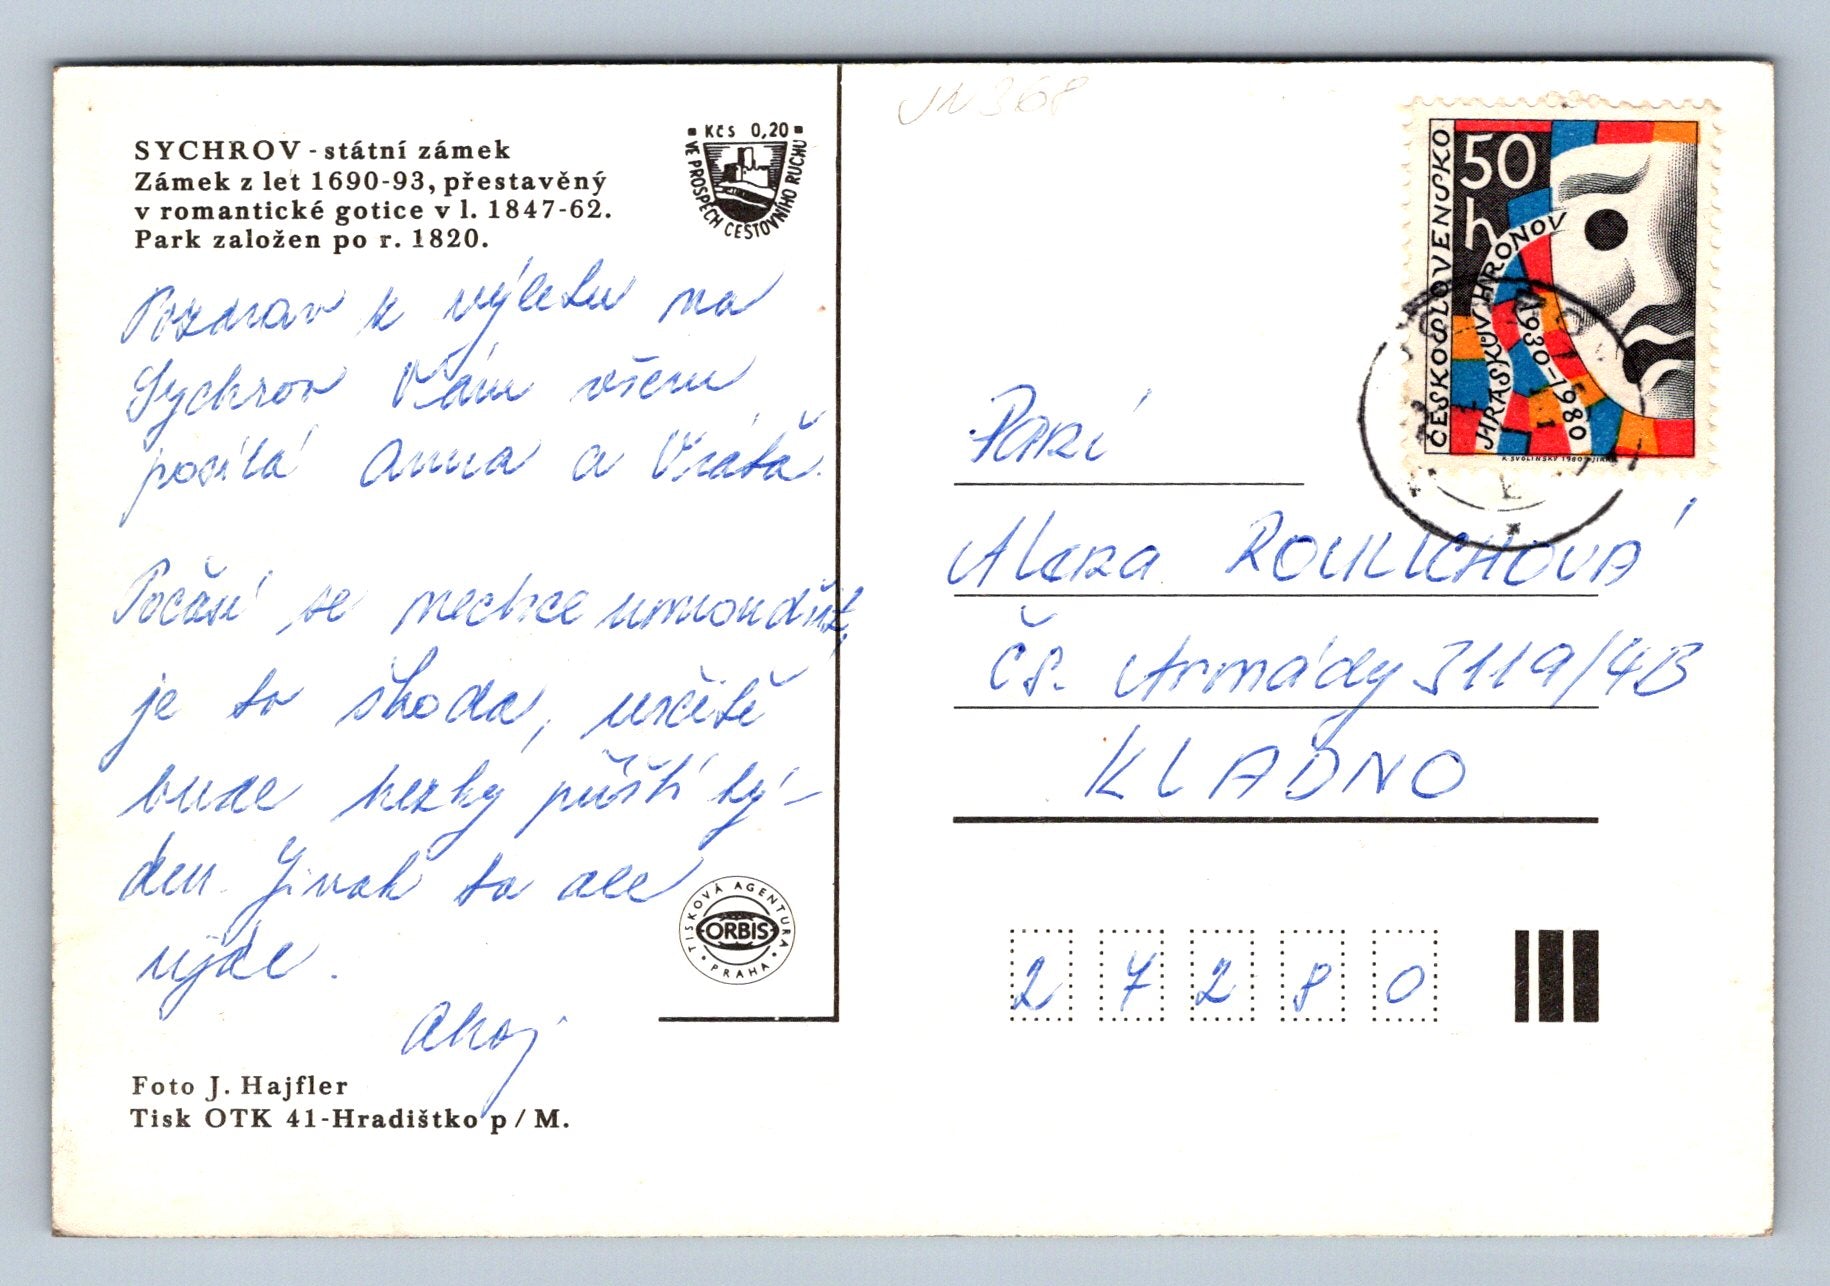 SYCHROV - státní zámek
Zámek z let 1690-93, přestavěný
v romantické gotice v l. 1847-62.
Park založen po r. 1820.
Kčs 0,20
VE PROSPĚCH CESTOVNÍHO RUCHU
Pozdrav z výletu na
Sychrov Vám všem
posílá Anna a Vráťa.
Počasí se nechce umoudřit,
je to škoda, určitě
bude hezky příští tý-
den. Jinak to ale
ujde.
Ahoj
TISKOVÁ AGENTURA
ORBIS
PRAHA
Foto J. Hajfler
Tisk OTK 41-Hradištko p/M.
ČESKOSLOVENSKO
50
h
JIRÁSKŮV HRONOV
1930-1980
K. SVOLINSKÝ 1980
Paní
Alena
Čs. Armády 3119/4B
KLADNO
27280